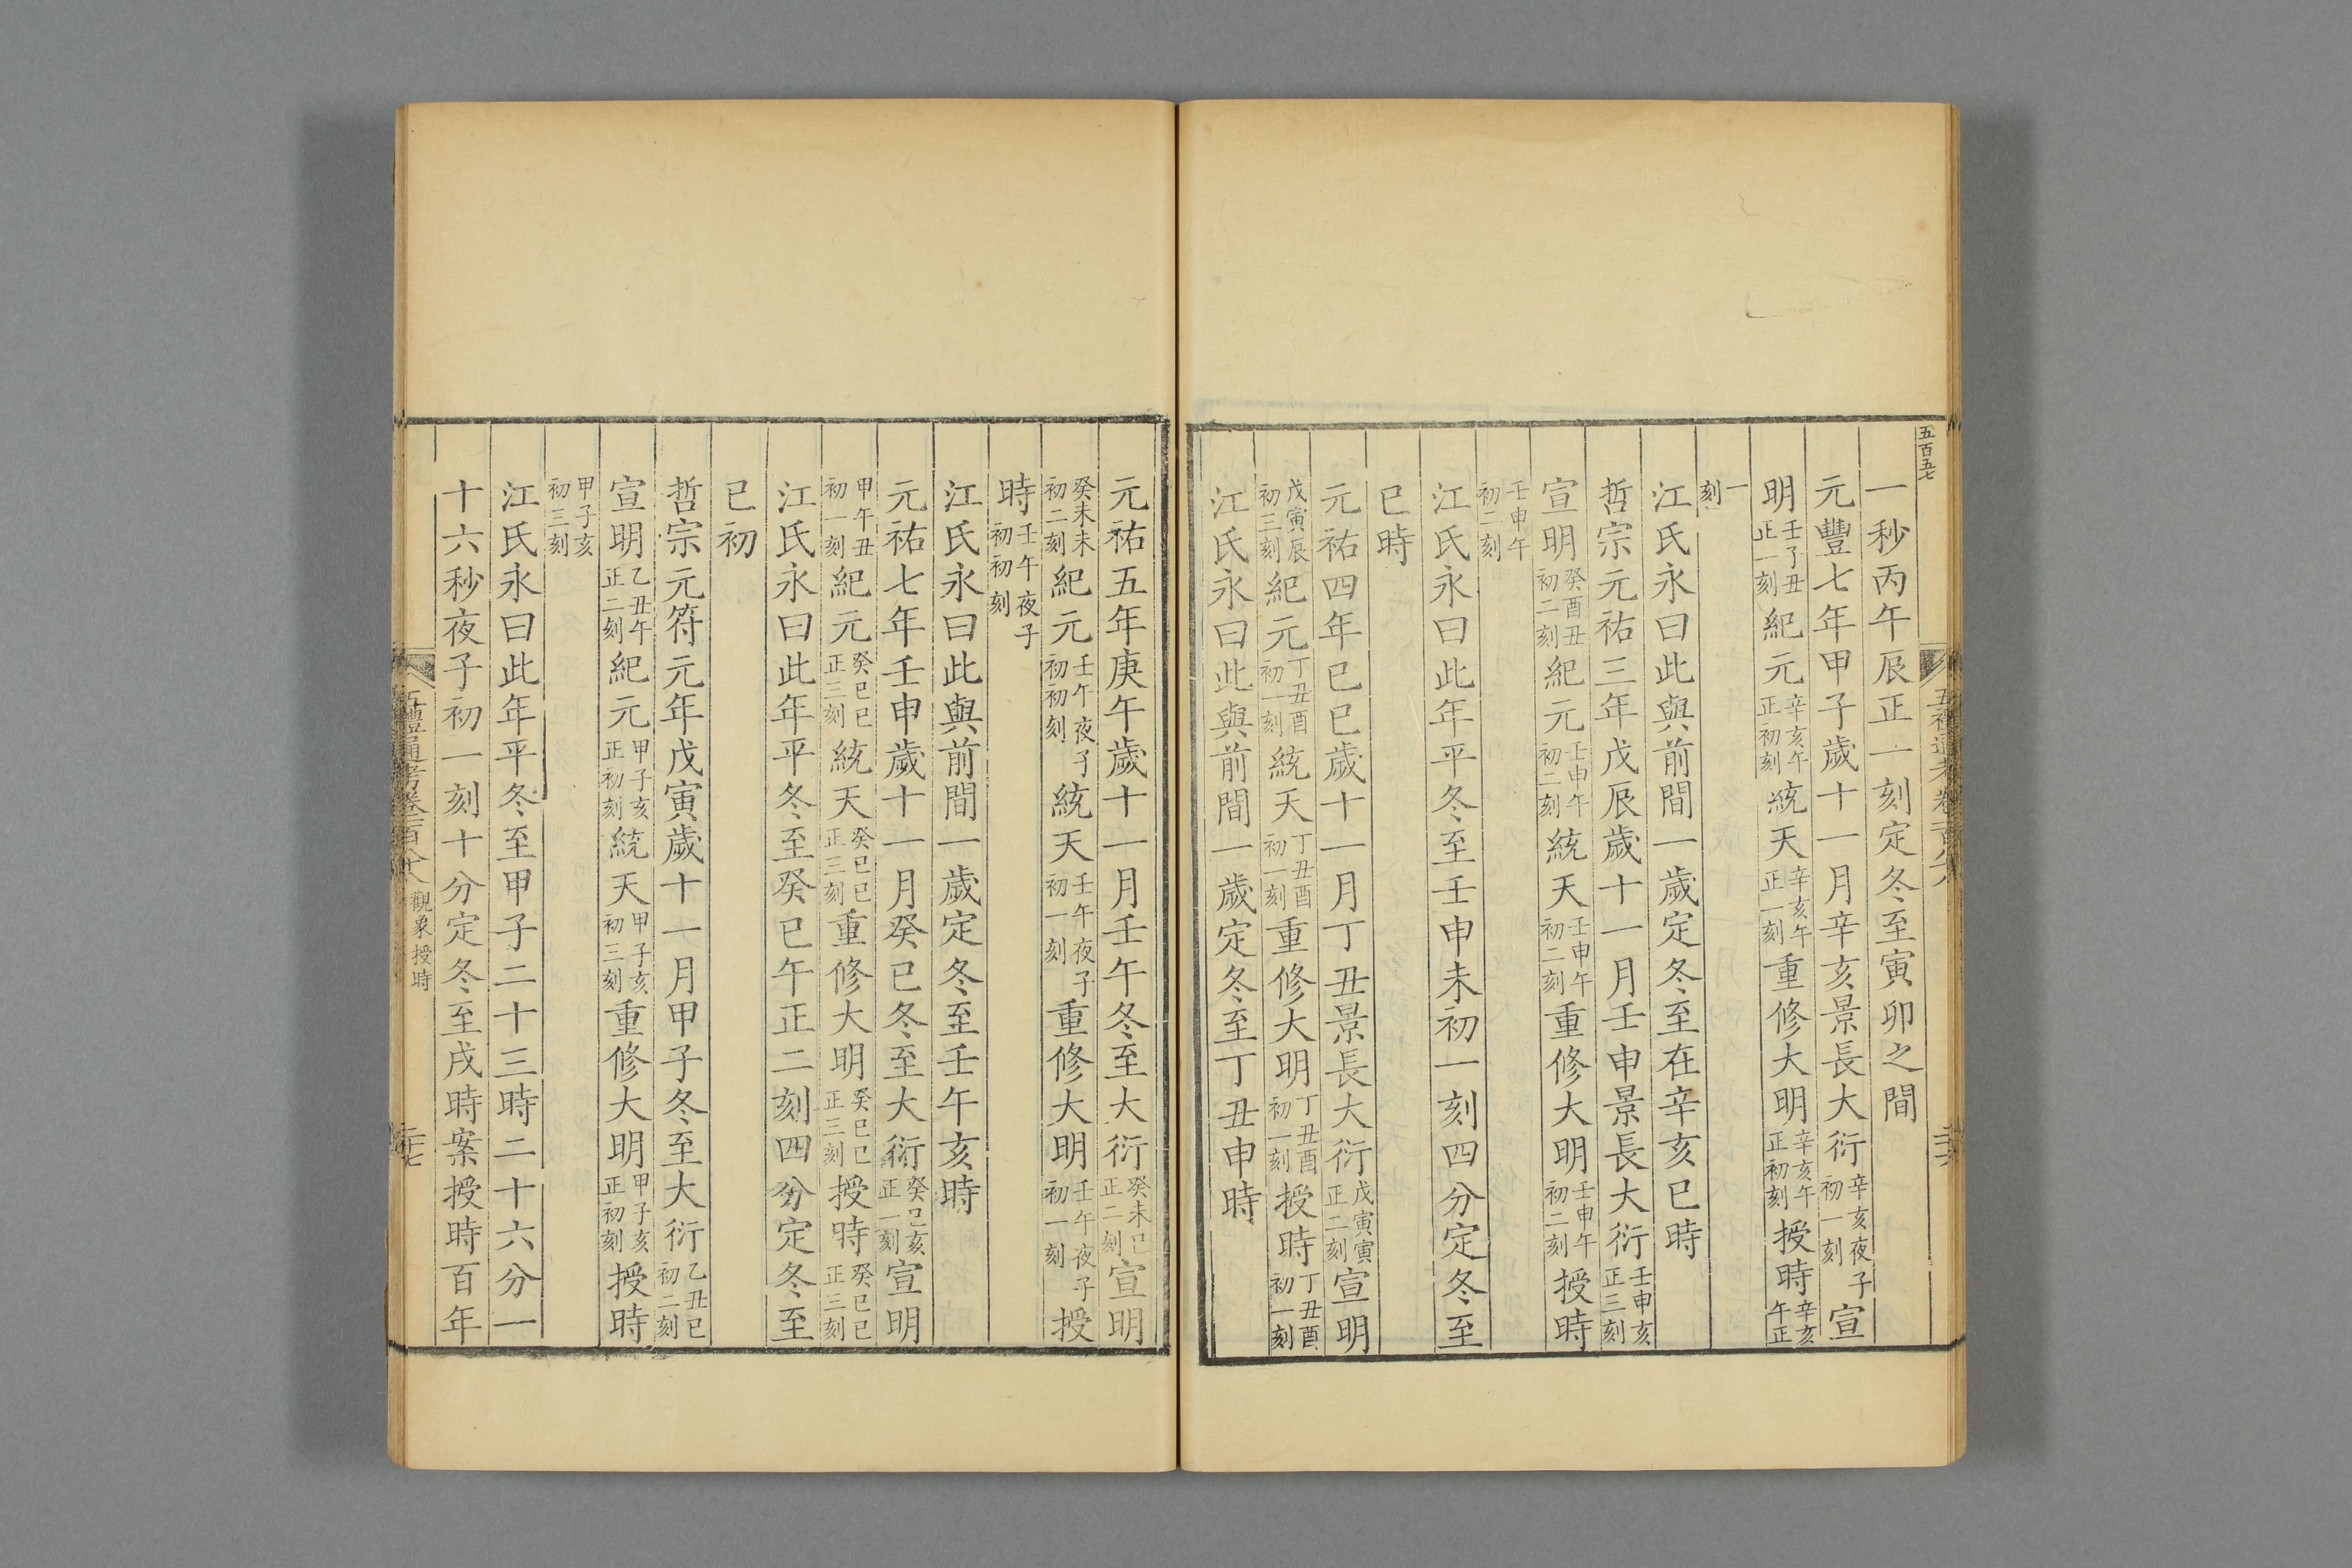 五百五七
一秒丙午辰正一刻定冬至寅卯之間
元豐七年甲子歲十一月辛亥景長大衍辛亥夜子初一刻宣
明壬子丑正一刻紀元辛亥午正初刻統天辛亥午正一刻重修大明辛亥午正初刻授時辛亥午正
一刻
江氏永曰此與前間一歲定冬至在辛亥巳時
哲宗元祐三年戊辰歲十一月壬申景長大衍壬申亥正三刻
宣明癸酉丑初二刻紀元壬申午初二刻統天壬申午初二刻重修大明壬申午初二刻授時
壬申午初二刻
江氏永曰此年平冬至壬申未初一刻四分定冬至
巳時
元祐四年己巳歲十一月丁丑景長大衍戊寅寅正二刻宣明
戊寅辰初三刻紀元丁丑酉初一刻統天丁丑酉初一刻重修大明丁丑酉初一刻授時丁丑酉初一刻
江氏永曰此與前間一歲定冬至丁丑申時
元祐五年庚午歲十一月壬午冬至大衍癸未巳正二刻宣明
癸未未初二刻紀元壬午夜子初初刻統天壬午夜子初一刻重修大明壬午夜子初一刻授
時壬午夜子初初刻
江氏永曰此與前間一歲定冬至壬午亥時
元祐七年壬申歲十一月癸巳冬至大衍癸巳亥正一刻宣明
甲午丑初一刻紀元癸巳巳正三刻統天癸巳巳正三刻重修大明癸巳巳正三刻授時癸巳巳正三刻
江氏永曰此年平冬至癸巳午正二刻四分定冬至
巳初
哲宗元符元年戊寅歲十一月甲子冬至大衍乙丑巳初二刻
宣明乙丑午正二刻紀元甲子亥正初刻統天甲子亥初三刻重修大明甲子亥正初刻授時
甲子亥初三刻
江氏永曰此年平冬至甲子二十三時二十六分一
十六秒夜子初一刻十分定冬至戌時案授時百年
觀象授時